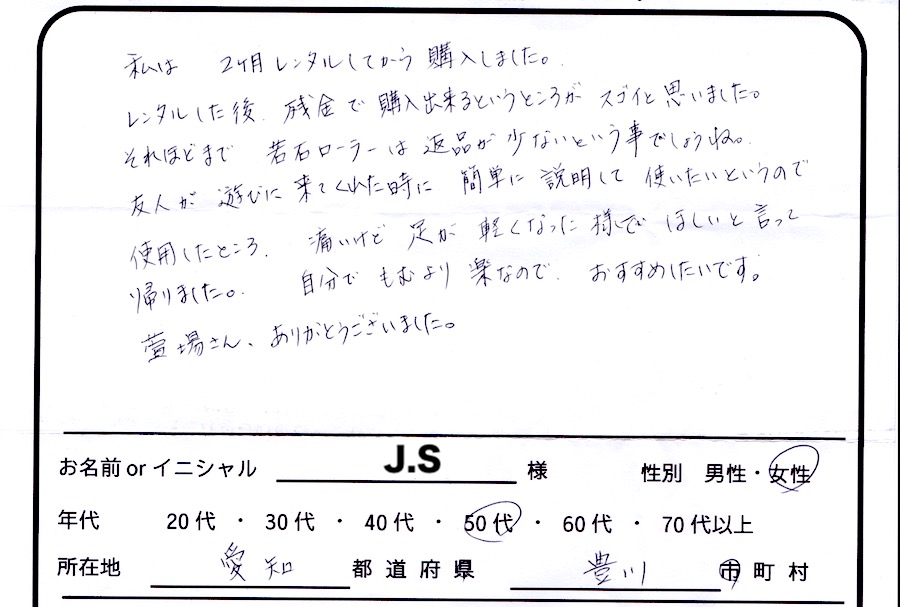 私は 2ヶ月レンタルしてから購入しました。
レンタルした後、残金で購入出来るというところがスゴイと思いました。
それほどまで 若石ローラーは返品が少ないという事でしょうね。
友人が遊びに来てくれた時に 簡単に説明して使いたいというので
使用したところ、痛いけど足が軽くなった様で ほしいと言って
帰りました。 自分でもむより楽なので、おすすめしたいです。
萱場さん、ありがとうございました。
お名前 or イニシャル J.S 様 性別 男性・女性
年代 20代 ・ 30代 ・ 40代 ・ 50代 ・ 60代 ・ 70代以上
所在地 愛知 都道府県 豊川 市町村